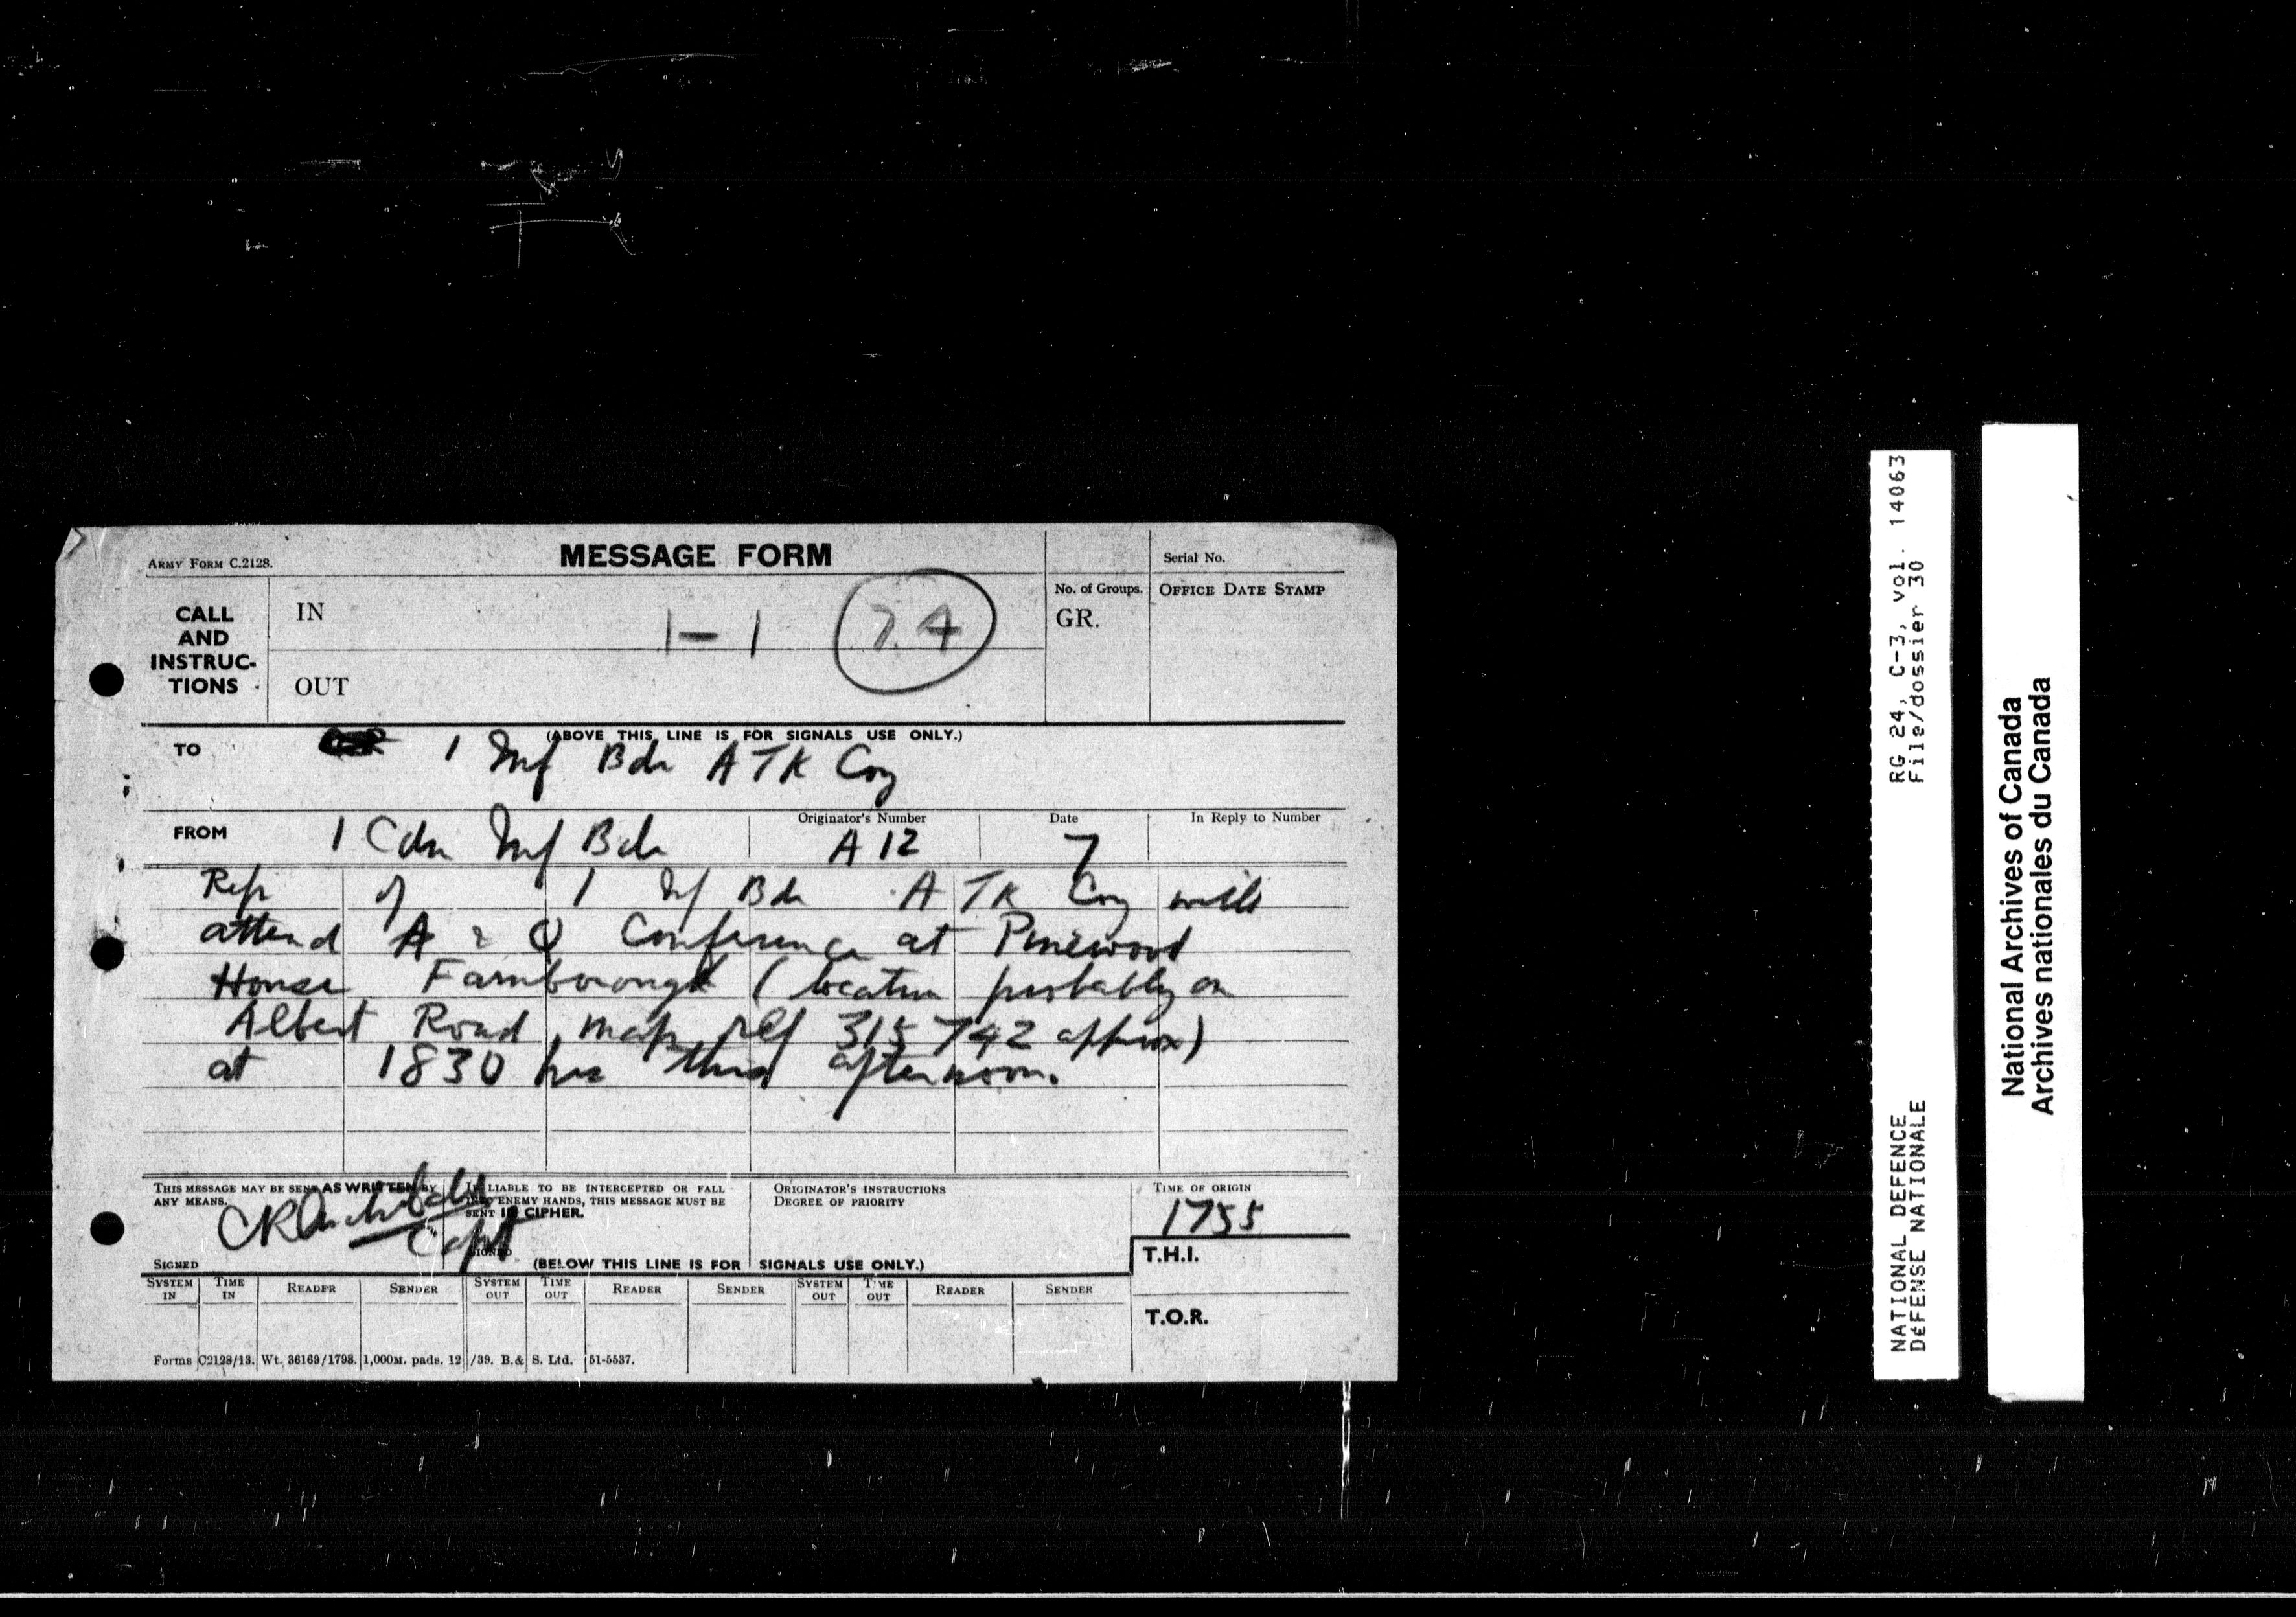 ARMY FORM C.2128.
MESSAGE FORM
Serial No.
CALL AND INSTRUC-TIONS
IN
1-1
7.4
No. of Groups.
GR.
OFFICE DATE STAMP
OUT
(ABOVE THIS LINE IS FOR SIGNALS USE ONLY.)
TO
1 Inf Bde A TK Coy
FROM
1 Cdn Inf Bde
Originator's Number
A 12
Date
7
In Reply to Number
Rep of 1 Inf Bde A TK Coy will
attend A & Q Conference at Pinewood
House Farnborough (location probably on
Albert Road map ref 315742 approx)
at 1830 hrs this afternoon.
THIS MESSAGE MAY BE SENT AS WRITTEN BY
ANY MEANS.
Capt
SIGNED
IF LIABLE TO BE INTERCEPTED OR FALL
INTO ENEMY HANDS, THIS MESSAGE MUST BE
SENT IN CIPHER.
SIGNED
ORIGINATOR'S INSTRUCTIONS
DEGREE OF PRIORITY
TIME OF ORIGIN
1755
(BELOW THIS LINE IS FOR SIGNALS USE ONLY.)
T.H.I.
SYSTEM IN TIME IN READER SENDER SYSTEM OUT TIME OUT READER SENDER SYSTEM OUT TIME OUT READER SENDER
T.O.R.
Forms C2128/13. Wt. 36169/1798. 1,000M. pads. 12/39. B.& S. Ltd. 51-5537.
NATIONAL DEFENCE RG 24, C-3, vol. 14063
DÉFENSE NATIONALE File/dossier 30
National Archives of Canada
Archives nationales du Canada